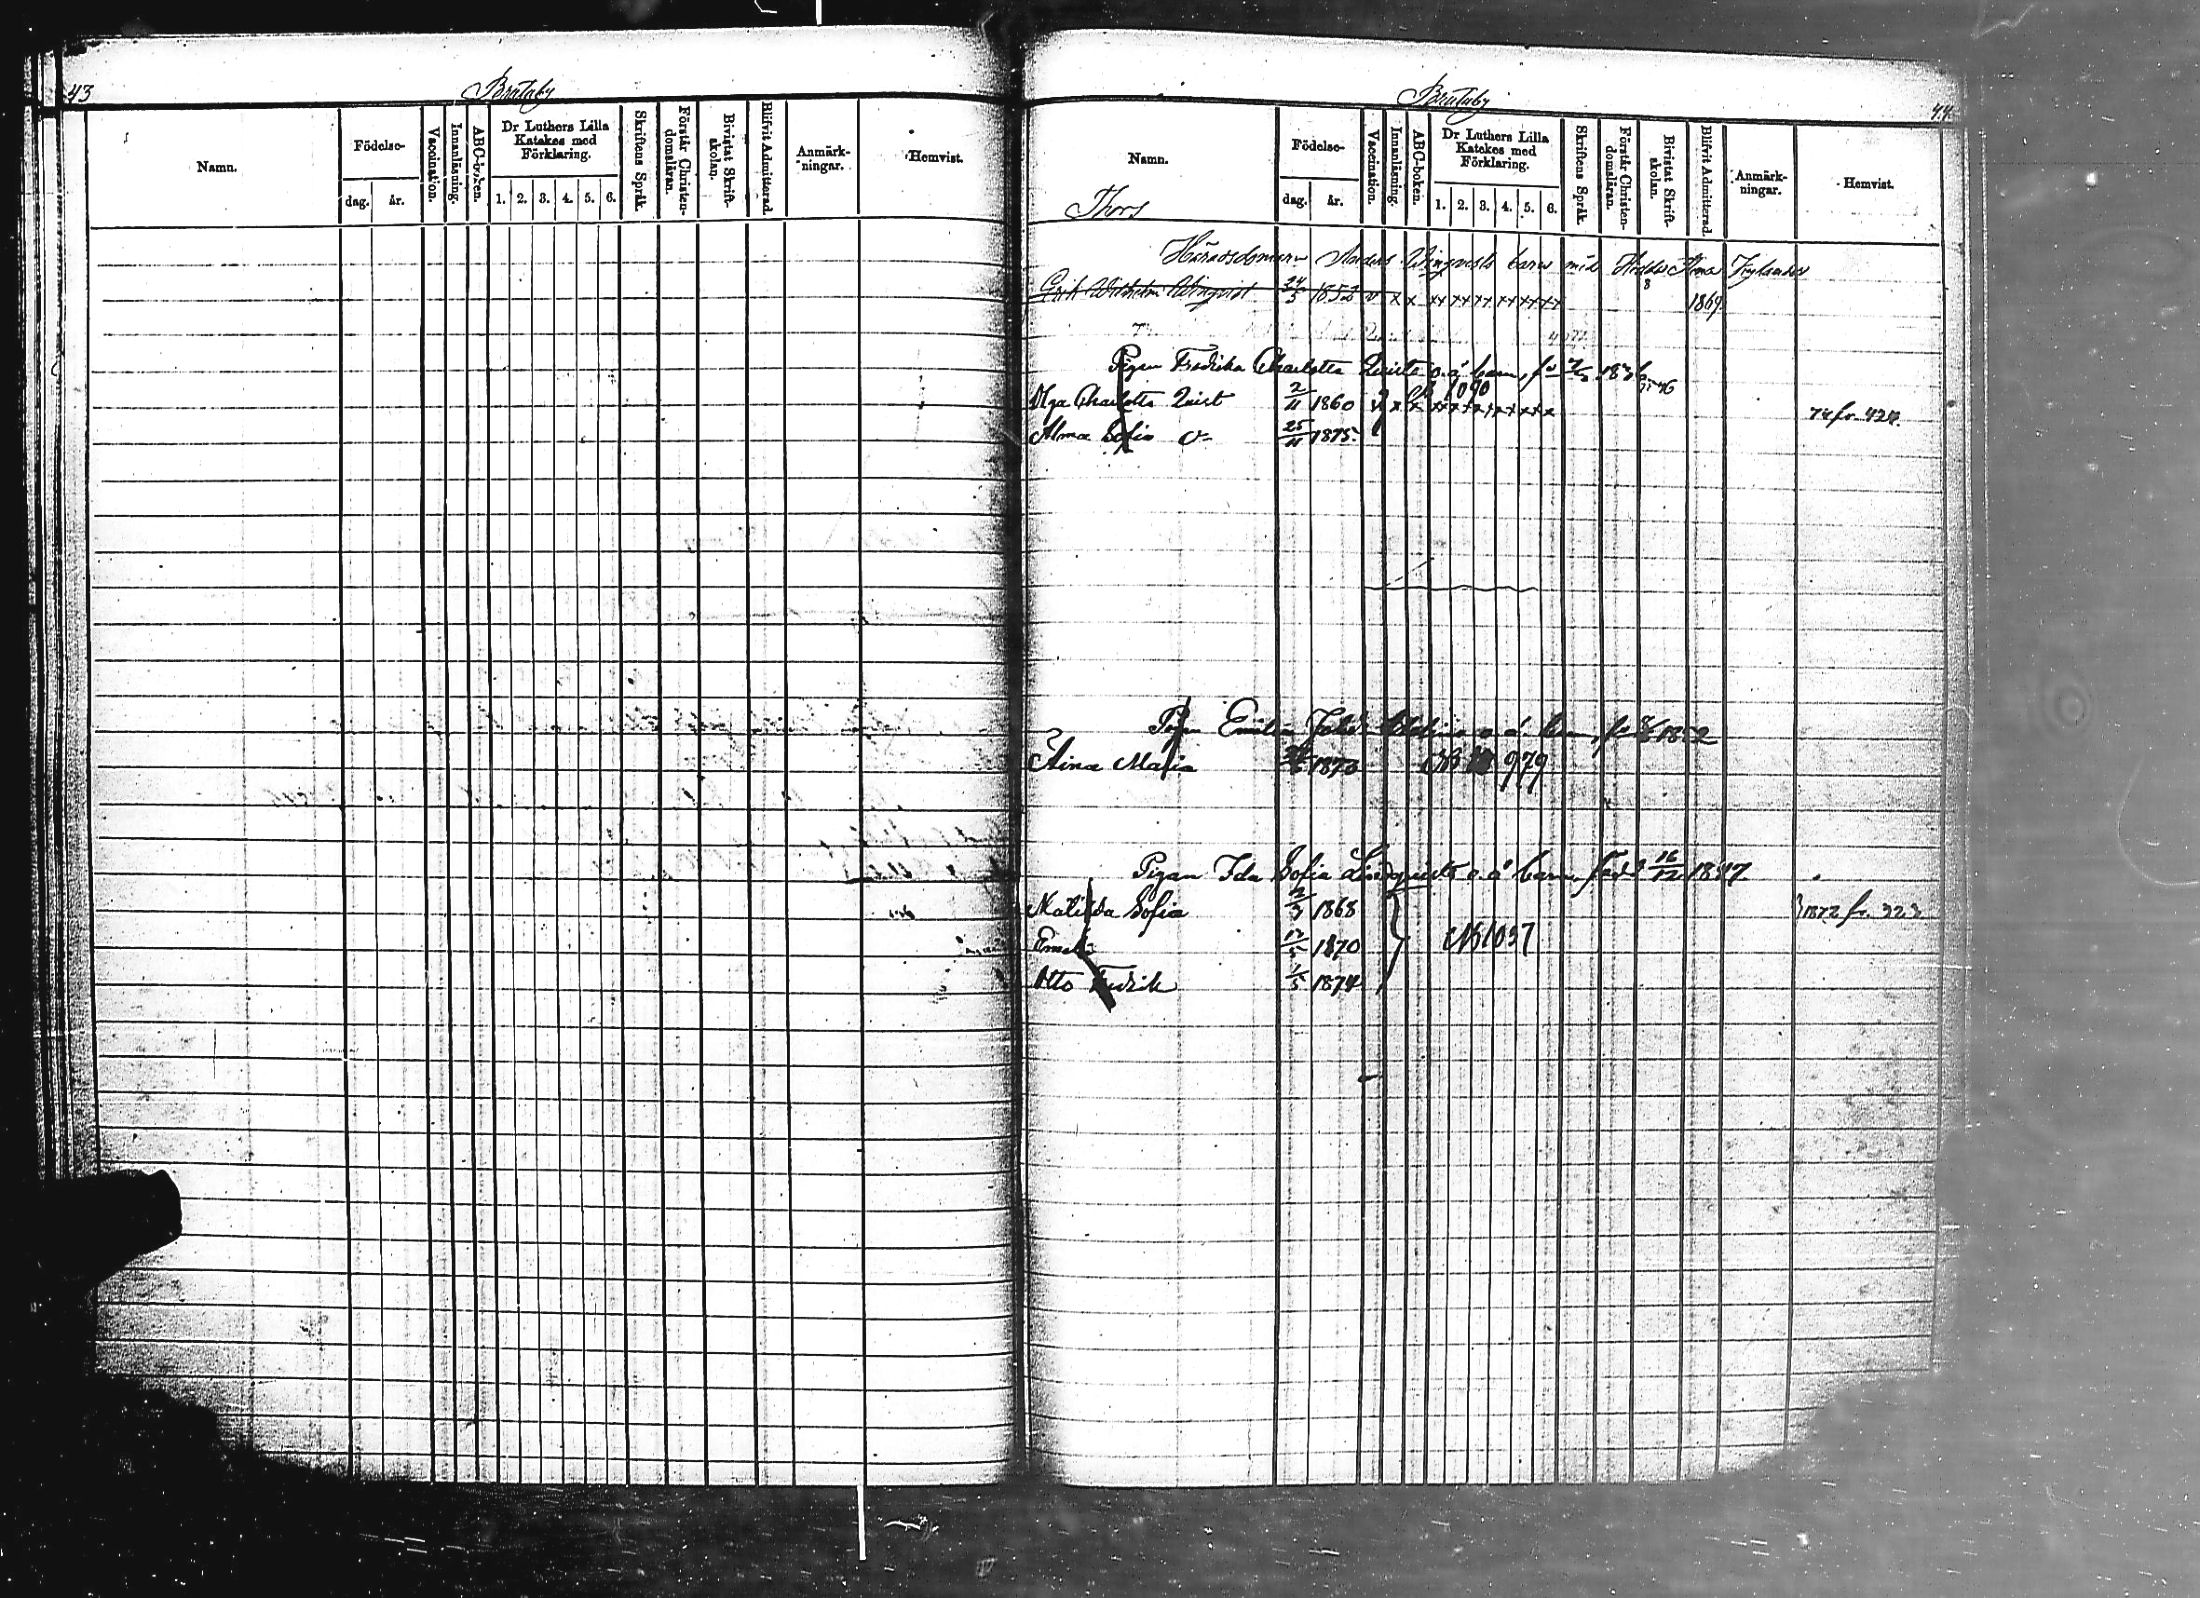 43
Brutuby
Namn.
Födelse-
dag.
år.
Vaccination.
Innanläsning.
ABC-boken.
Dr Luthers Lilla
Katekes med
Förklaring.
1. 2. 3. 4. 5. 6.
Skriftens Språk.
Förstår Christen-
domsläran.
Bivistat Skrift-
skolan.
Blifvit Admitterad.
Anmärk-
ningar.
Hemvist.
Brutuby
44.
Namn.
Födelse-
dag.
år.
Vaccination.
Innanläsning.
ABC-boken.
Dr Luthers Lilla
Katekes med
Förklaring.
1. 2. 3. 4. 5. 6.
Skriftens Språk.
Förstår Christen-
domsläran.
Bivistat Skrift-
skolan.
Blifvit Admitterad.
Anmärk-
ningar.
Hemvist.
Thors
Häradsdomarn Anders Winqvists barn med
Erik Wilhelm Winqvist 24/5 1852 v x x xx xx xx xx xx xx 1869
Pigan Fredrika Charlotta Quists o. ä barn,
1090
Olga Charlotta Quist 2/11 1860 v x x xx xx xx xx xx 74 fr. 424.
Alma Sofia 25/11 1875.
Pigan Emilia o. ä barn, 1852
Aina Maria 1873 № 979
Pigan Ida Sofia Lindquists o. ä barn, född 16/12 1847.
Matilda Sofia 2/3 1868 1872 fr. 323
Emeli 12/5 1870 № 1037
Otto Fredrik 1/5 1874